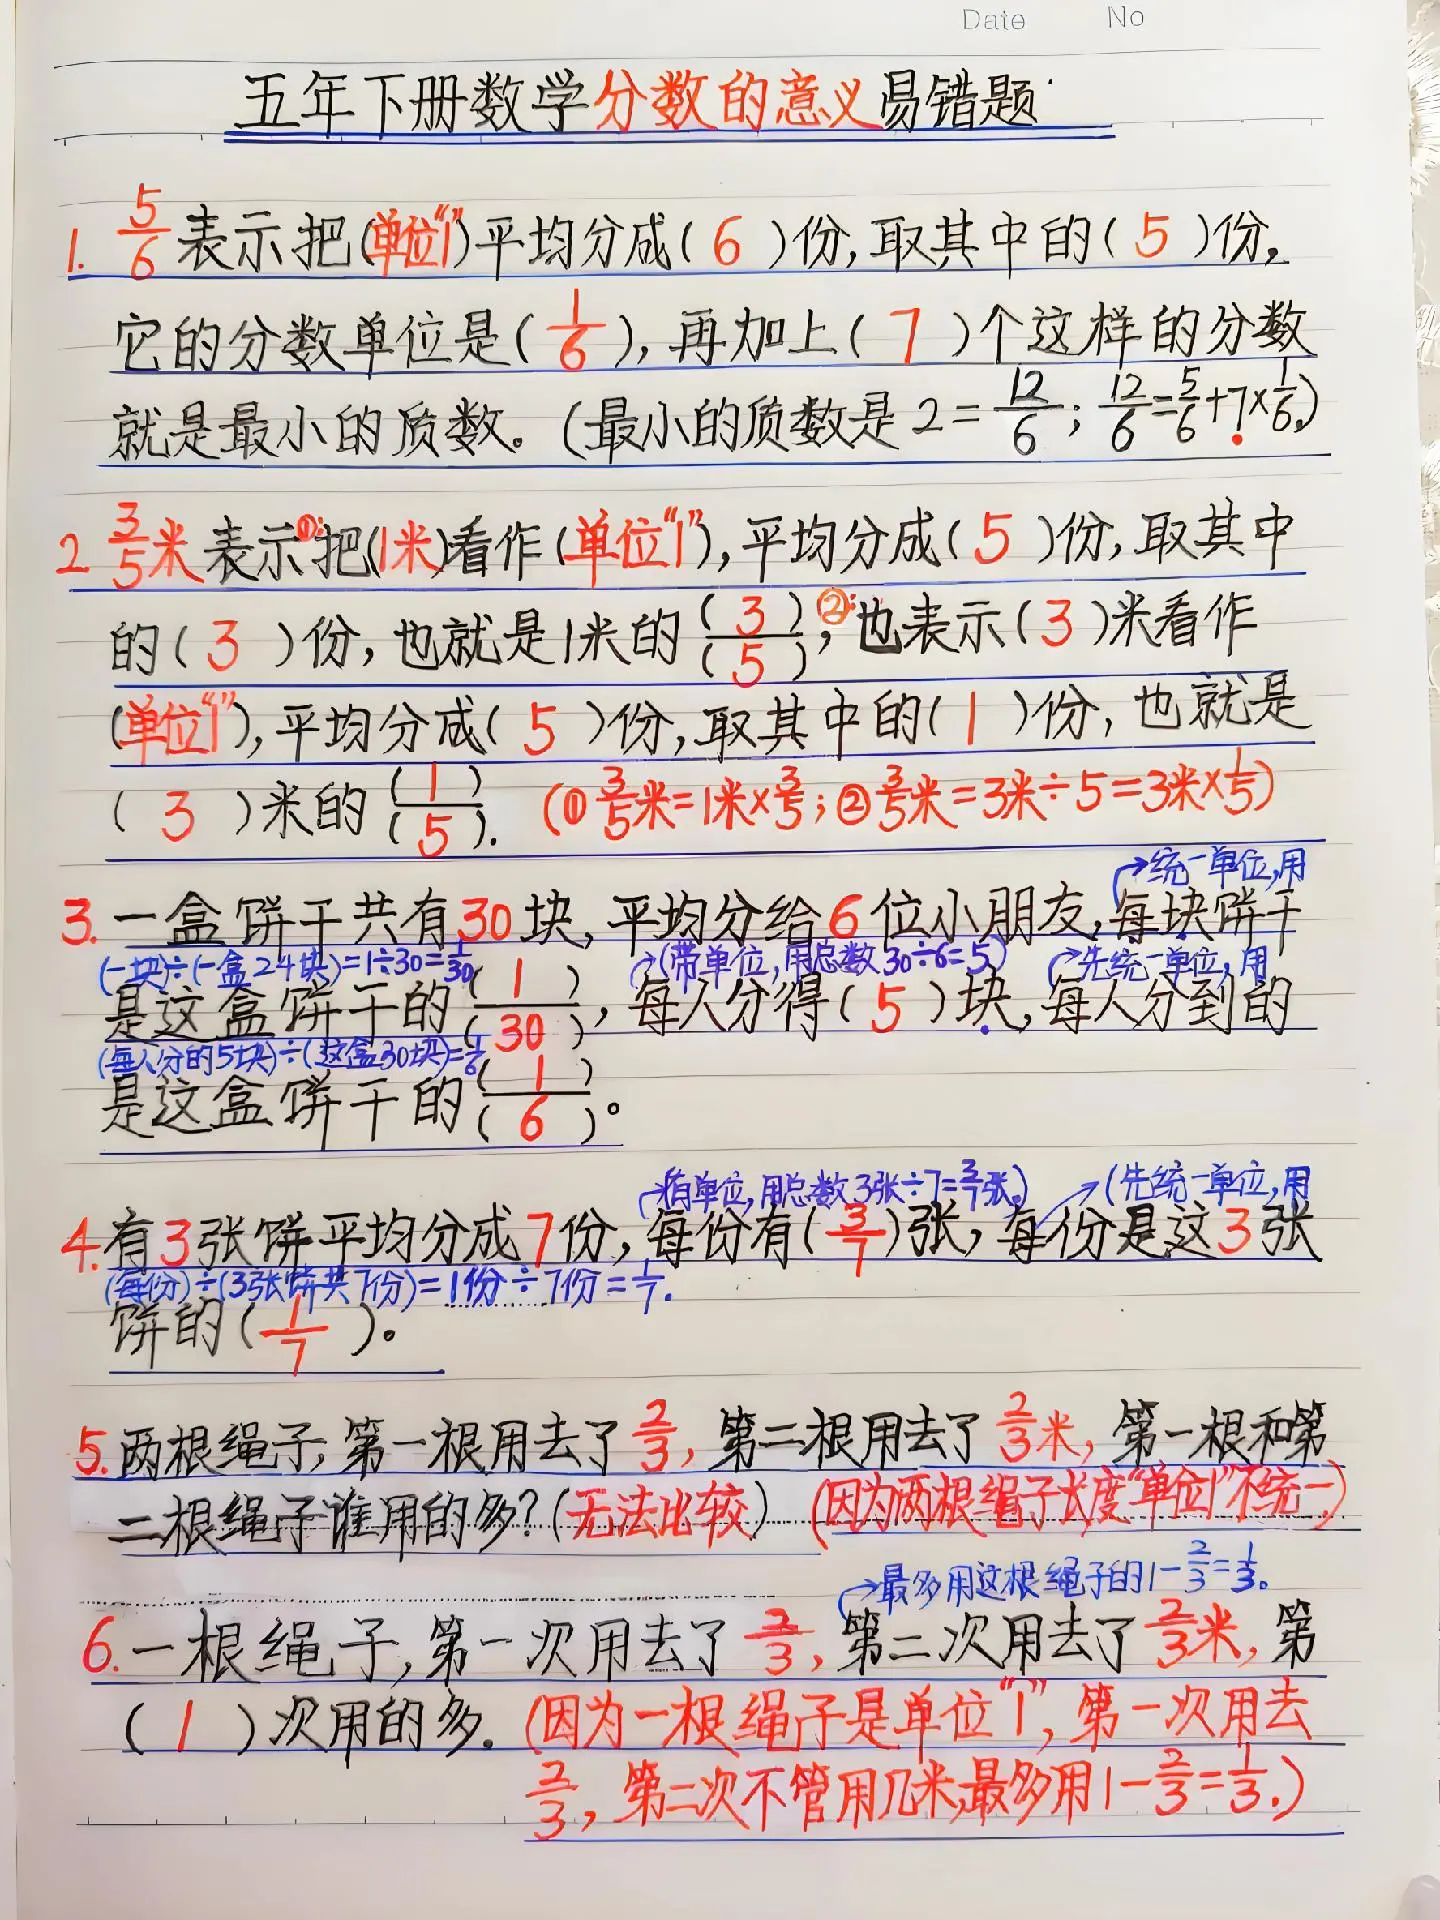 Date No
五年下册数学分数的意义易错题
1. 5/6 表示把(单位"1")平均分成( 6 )份,取其中的( 5 )份,
它的分数单位是( 1/6 ),再加上( 7 )个这样的分数
就是最小的质数。(最小的质数是2=12/6;12/6=5/6+7×1/6。)
2 3/5米表示①:把(1米)看作(单位"1"),平均分成( 5 )份,取其中
的( 3 )份,也就是1米的( 3 )/( 5 ),②:也表示( 3 )米看作
(单位"1"),平均分成( 5 )份,取其中的( 1 )份,也就是
( 3 )米的( 1 )/( 5 ). (①3/5米=1米×3/5;②3/5米=3米÷5=3米×1/5)
→统一单位,用
3. 一盒饼干共有30块,平均分给6位小朋友,每块饼干
(一块)÷(一盒24块)=1÷30=1/30 (带单位,用总数30÷6=5) 先统一单位,用
是这盒饼干的( 1 )/( 30 ),每人分得( 5 )块,每人分到的
(每人分的5块)÷(这盒30块)=1/6
是这盒饼干的( 1 )/( 6 )。
(有单位,用总数3张÷7=3/7张。) (先统一单位,用
4.有3张饼平均分成7份,每份有( 3/7 )张,每份是这3张
(每份)÷(3张饼共7份)=1份÷7份=1/7.
饼的( 1/7 )。
5.两根绳子,第一根用去了2/3,第二根用去了2/3米,第一根和第
二根绳子谁用的多?(无法比较) (因为两根绳子长度"单位1"不统一)
→最多用这根绳子的1-2/3=1/3。
6.一根绳子,第一次用去了2/3,第二次用去了2/3米,第
( 1 )次用的多. (因为一根绳子是单位"1",第一次用去
2/3,第二次不管用几米,最多用1-2/3=1/3.)